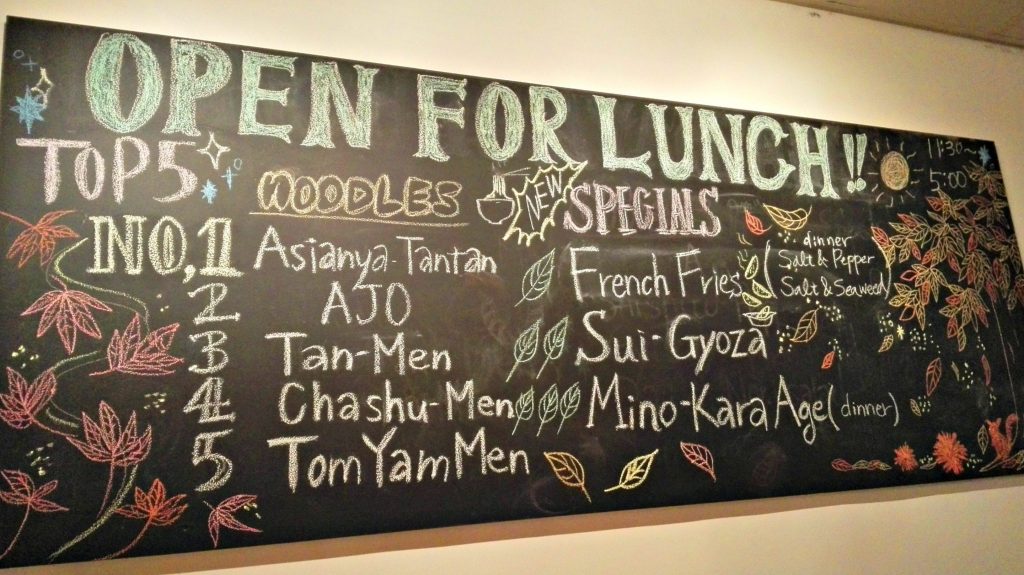 OPEN FOR LUNCH!!
11:30~
5:00
TOP5
NOODLES
NO,1 Asianya-Tantan
2 AJO
3 Tan-Men
4 Chashu-Men
5 Tom Yam Men
NEW
SPECIALS
French Fries (dinner
Salt & Pepper
Salt & Seaweed)
Sui-Gyoza
Mino-Kara Age (dinner)